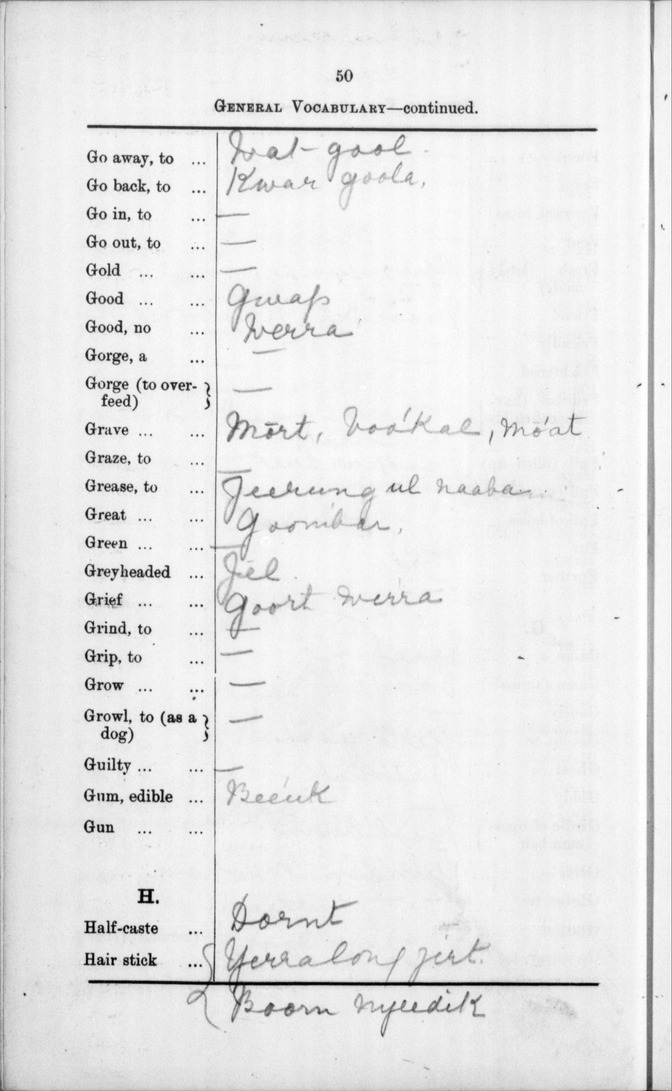 50
GENERAL VOCABULARY—continued.
Go away, to ... Wat-gool.
Go back, to ... Kwar goola,
Go in, to ... —
Go out, to ... —
Gold ... ... —
Good ... ... Gwap
Good, no ... Werra
Gorge, a ... —
Gorge (to over-
feed) } —
Grave ... ... Mört, boo'kal, mo'at
Graze, to ... —
Grease, to ... Jeerung ul naaban.
Great ... ... Goombar,
Green ... ... —
Greyheaded ... Jel
Grief ... ... Goort werra
Grind, to ... —
Grip, to ... —
Grow ... ... —
Growl, to (as a
dog) } —
Guilty ... ... —
Gum, edible ... Bee'uk
Gun ... ...
H.
Half-caste ... Dornt
Hair stick ... { Yerralong jirt.
Boorn nyeedik